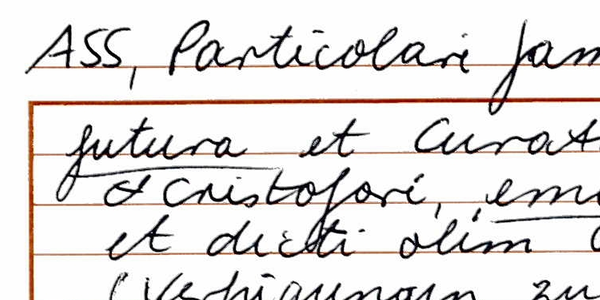 ASS, Particolari fam
futura et Curat
& Cristofori, em
et dicti olim
zu